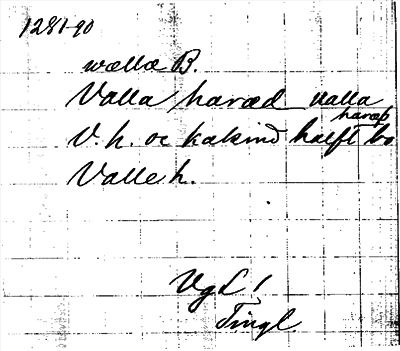 1281-90
wællæ B.
Valla haræd valla
haræþ
V. h. oc kakind halft bo
Valle h.
VgL 1
Tingl.